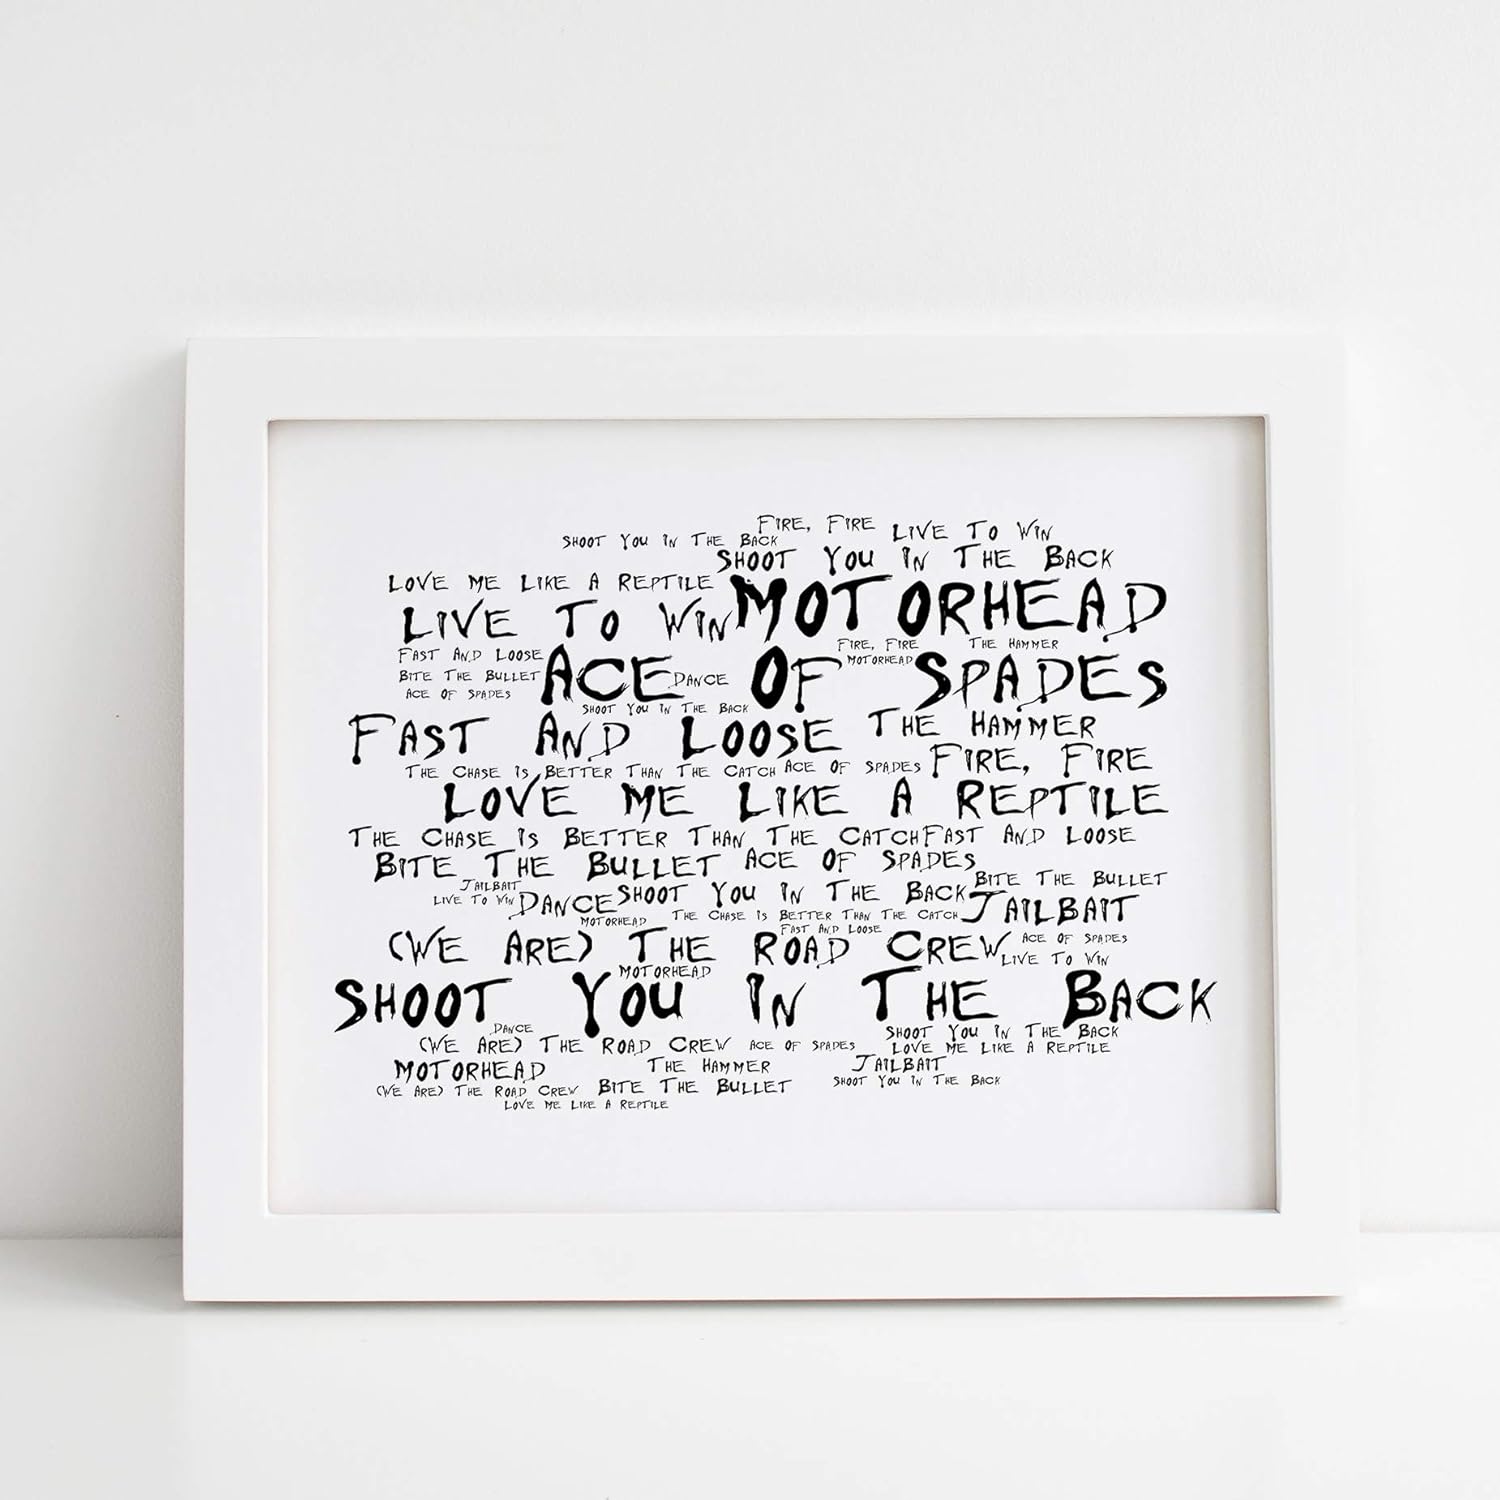 FIRE, FIRE LIVE TO WIN
SHOOT YOU IN THE BACK
SHOOT YOU IN THE BACK
LOVE ME LIKE A REPTILE
MOTORHEAD
LIVE TO WIN
FIRE, FIRE THE HAMMER
FAST AND LOOSE
ACE OF SPADES
MOTORHEAD
BITE THE BULLET
DANCE
ACE OF SPADES
SHOOT YOU IN THE BACK
FAST AND LOOSE
THE HAMMER
FIRE, FIRE
THE CHASE IS BETTER THAN THE CATCH ACE OF SPADES
LOVE ME LIKE A REPTILE
THE CHASE IS BETTER THAN THE CATCH FAST AND LOOSE
BITE THE BULLET ACE OF SPADES
BITE THE BULLET
JAILBAIT
LIVE TO WIN DANCE SHOOT YOU IN THE BACK
JAILBAIT
MOTORHEAD THE CHASE IS BETTER THAN THE CATCH
FAST AND LOOSE
(WE ARE) THE ROAD CREW
ACE OF SPADES
LIVE TO WIN
MOTORHEAD
SHOOT YOU IN THE BACK
DANCE
SHOOT YOU IN THE BACK
(WE ARE) THE ROAD CREW ACE OF SPADES LOVE ME LIKE A REPTILE
MOTORHEAD THE HAMMER JAILBAIT
SHOOT YOU IN THE BACK
(WE ARE) THE ROAD CREW BITE THE BULLET
LOVE ME LIKE A REPTILE